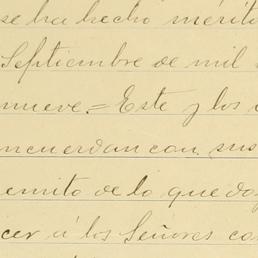 se ha hecho mérito
Septiembre de mil
nueve.= Este y los
ncuerdan con sus
emito de lo que doy
cer á los Señores co